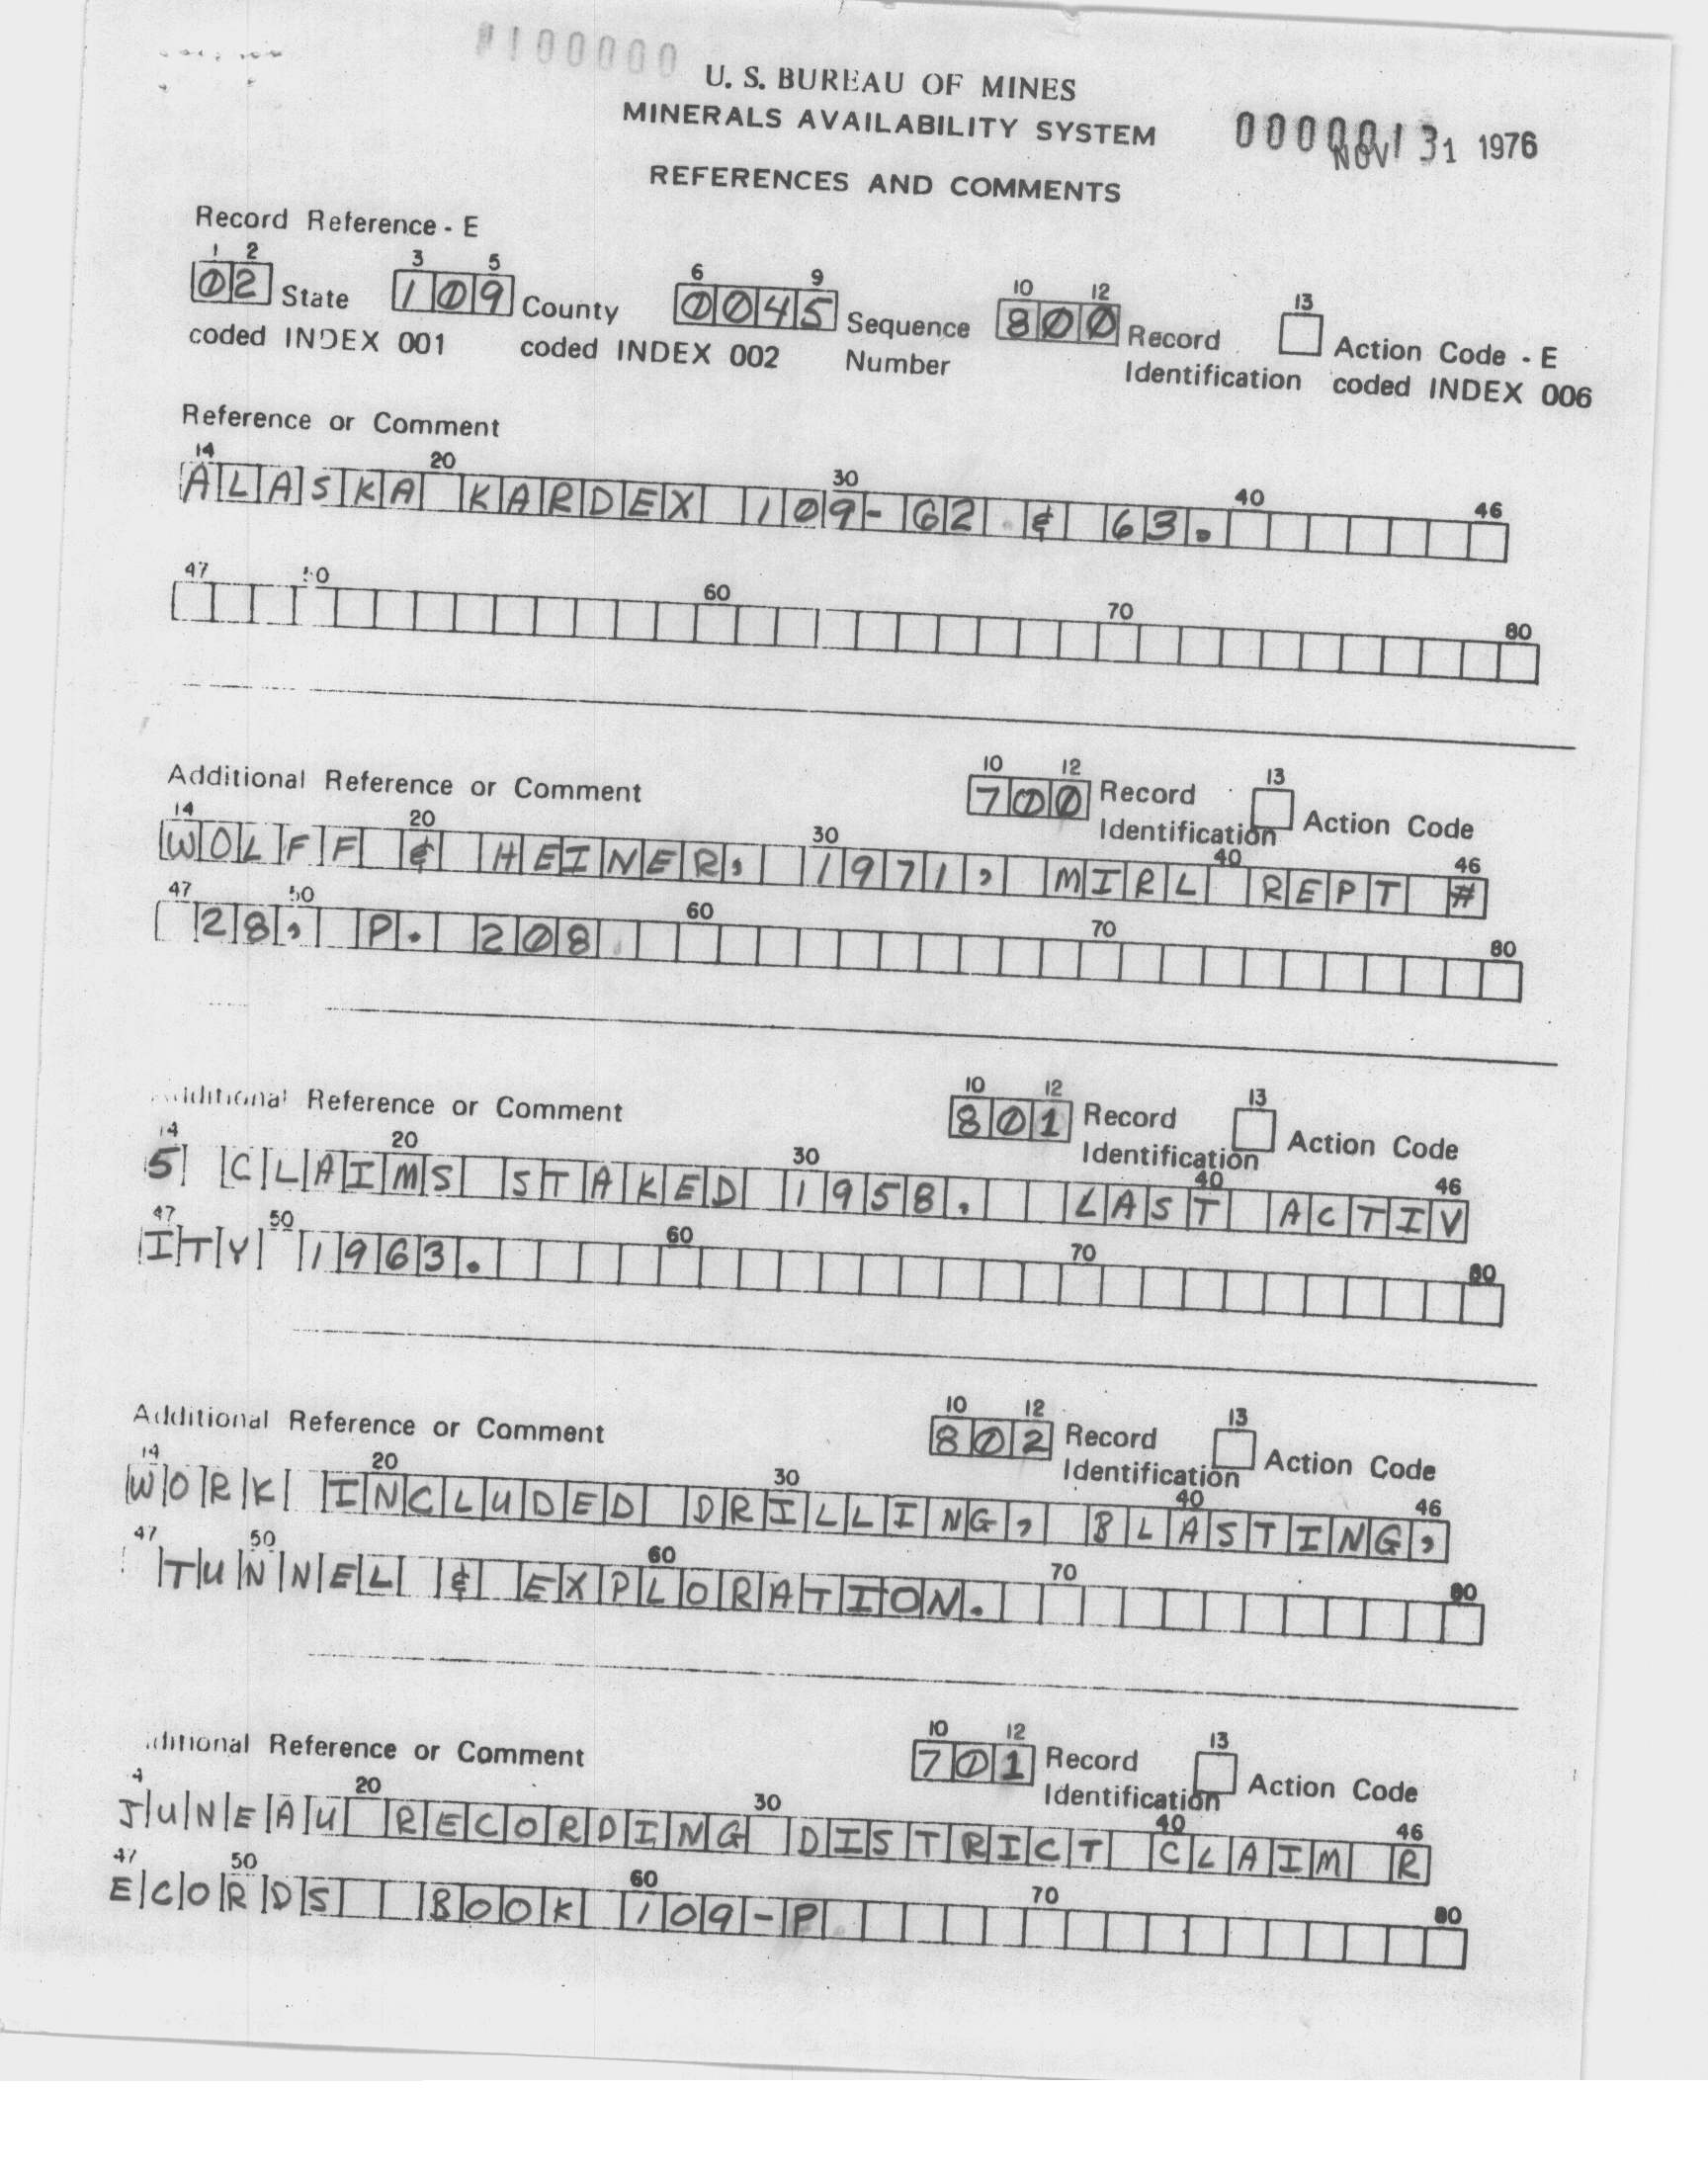 #100000
U. S. BUREAU OF MINES
MINERALS AVAILABILITY SYSTEM
NOV 1976
REFERENCES AND COMMENTS
Record Reference - E
1 2 3 5 6 9 10 12 13
02 State 109 County 0045 Sequence 800 Record Action Code - E
coded INDEX 001 coded INDEX 002 Number Identification coded INDEX 006
Reference or Comment
14 20 30 40 46
ALASKA KARDEX 109-62 & 63.
47 50 60 70 80
Additional Reference or Comment 10 12 700 Record Identification 13 Action Code
14 20 30 40 46
WOLFF & HEINER, 1971, MIRL REPT #
47 50 60 70 80
28, P. 208
Additional Reference or Comment 10 12 801 Record Identification 13 Action Code
14 20 30 40 46
5 CLAIMS STAKED 1958. LAST ACTIV
47 50 60 70 80
ITY 1963.
Additional Reference or Comment 10 12 802 Record Identification 13 Action Code
14 20 30 40 46
WORK INCLUDED DRILLING, BLASTING,
47 50 60 70 80
TUNNEL & EXPLORATION.
ditional Reference or Comment 10 12 701 Record Identification 13 Action Code
4 20 30 40 46
JUNEAU RECORDING DISTRICT CLAIM R
47 50 60 70 80
ECORDS BOOK 109-P